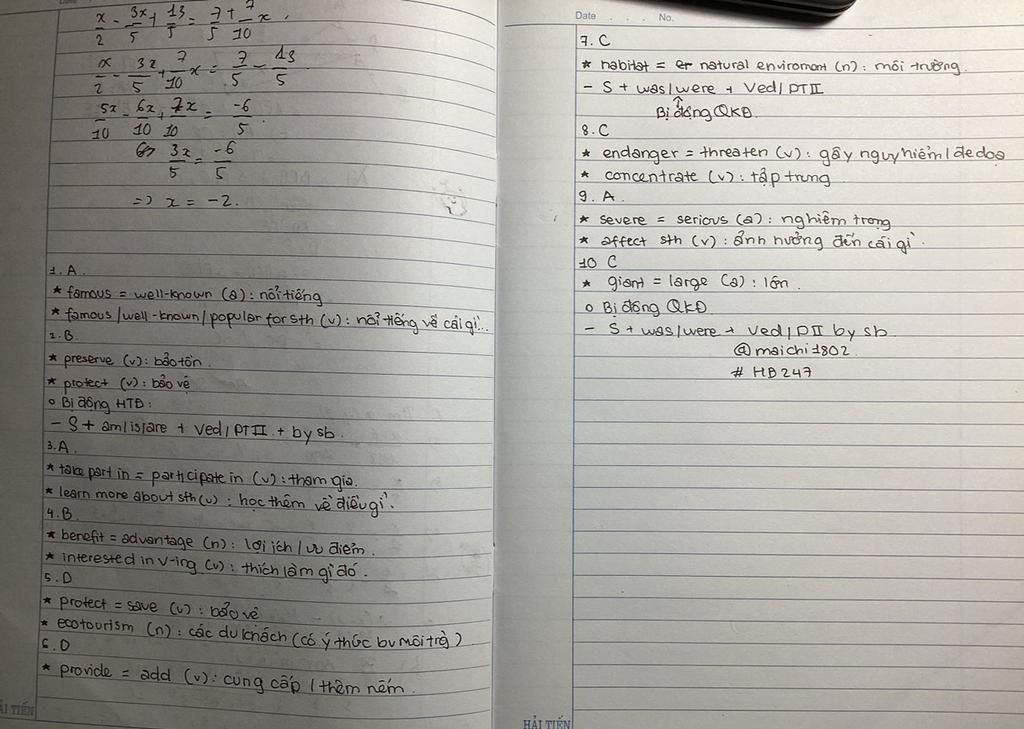 x/2 - 3x/5 + 13/5 = 7/5 + 7/10 x.
x/2 - 3x/5 + 7/10 x = 7/5 - 13/5
5x/10 - 6x/10 + 7x/10 = -6/5.
<=> 3x/5 = -6/5
=> x = -2.
1. A.
* famous = well-known (a): nổi tiếng
* famous/well-known/popular for sth (v): nổi tiếng về cái gì...
2. B.
* preserve (v): bảo tồn.
* protect (v): bảo vệ
o Bị động HTĐ:
- S + am/is/are + Ved/PTII + by sb.
3. A.
* take part in = participate in (v): tham gia.
* learn more about sth (v): học thêm về điều gì.
4. B
* benefit = advantage (n): lợi ích/ưu điểm.
* interested in V-ing (v): thích làm gì đó.
5. D
* protect = save (v): bảo vệ
* ecotourism (n): các du khách (có ý thức bv môi trg)
6. D
* provide = add (v): cung cấp / thêm nếm.
HẢI TIẾN
Date . . . No.
7. C
* habitat = natural enviroment (n): môi trường.
- S + was/were + Ved/PTII
Bị động QKĐ.
8. C
* endanger = threaten (v): gây nguy hiểm/đe doạ
* concentrate (v): tập trung
9. A.
* severe = serious (a): nghiêm trọng
* affect sth (v): ảnh hưởng đến cái gì.
10 C
* giant = large (a): lớn.
o Bị động QKĐ
- S + was/were + Ved/PII by sb
@maichi1802
# HB247
HẢI TIẾN